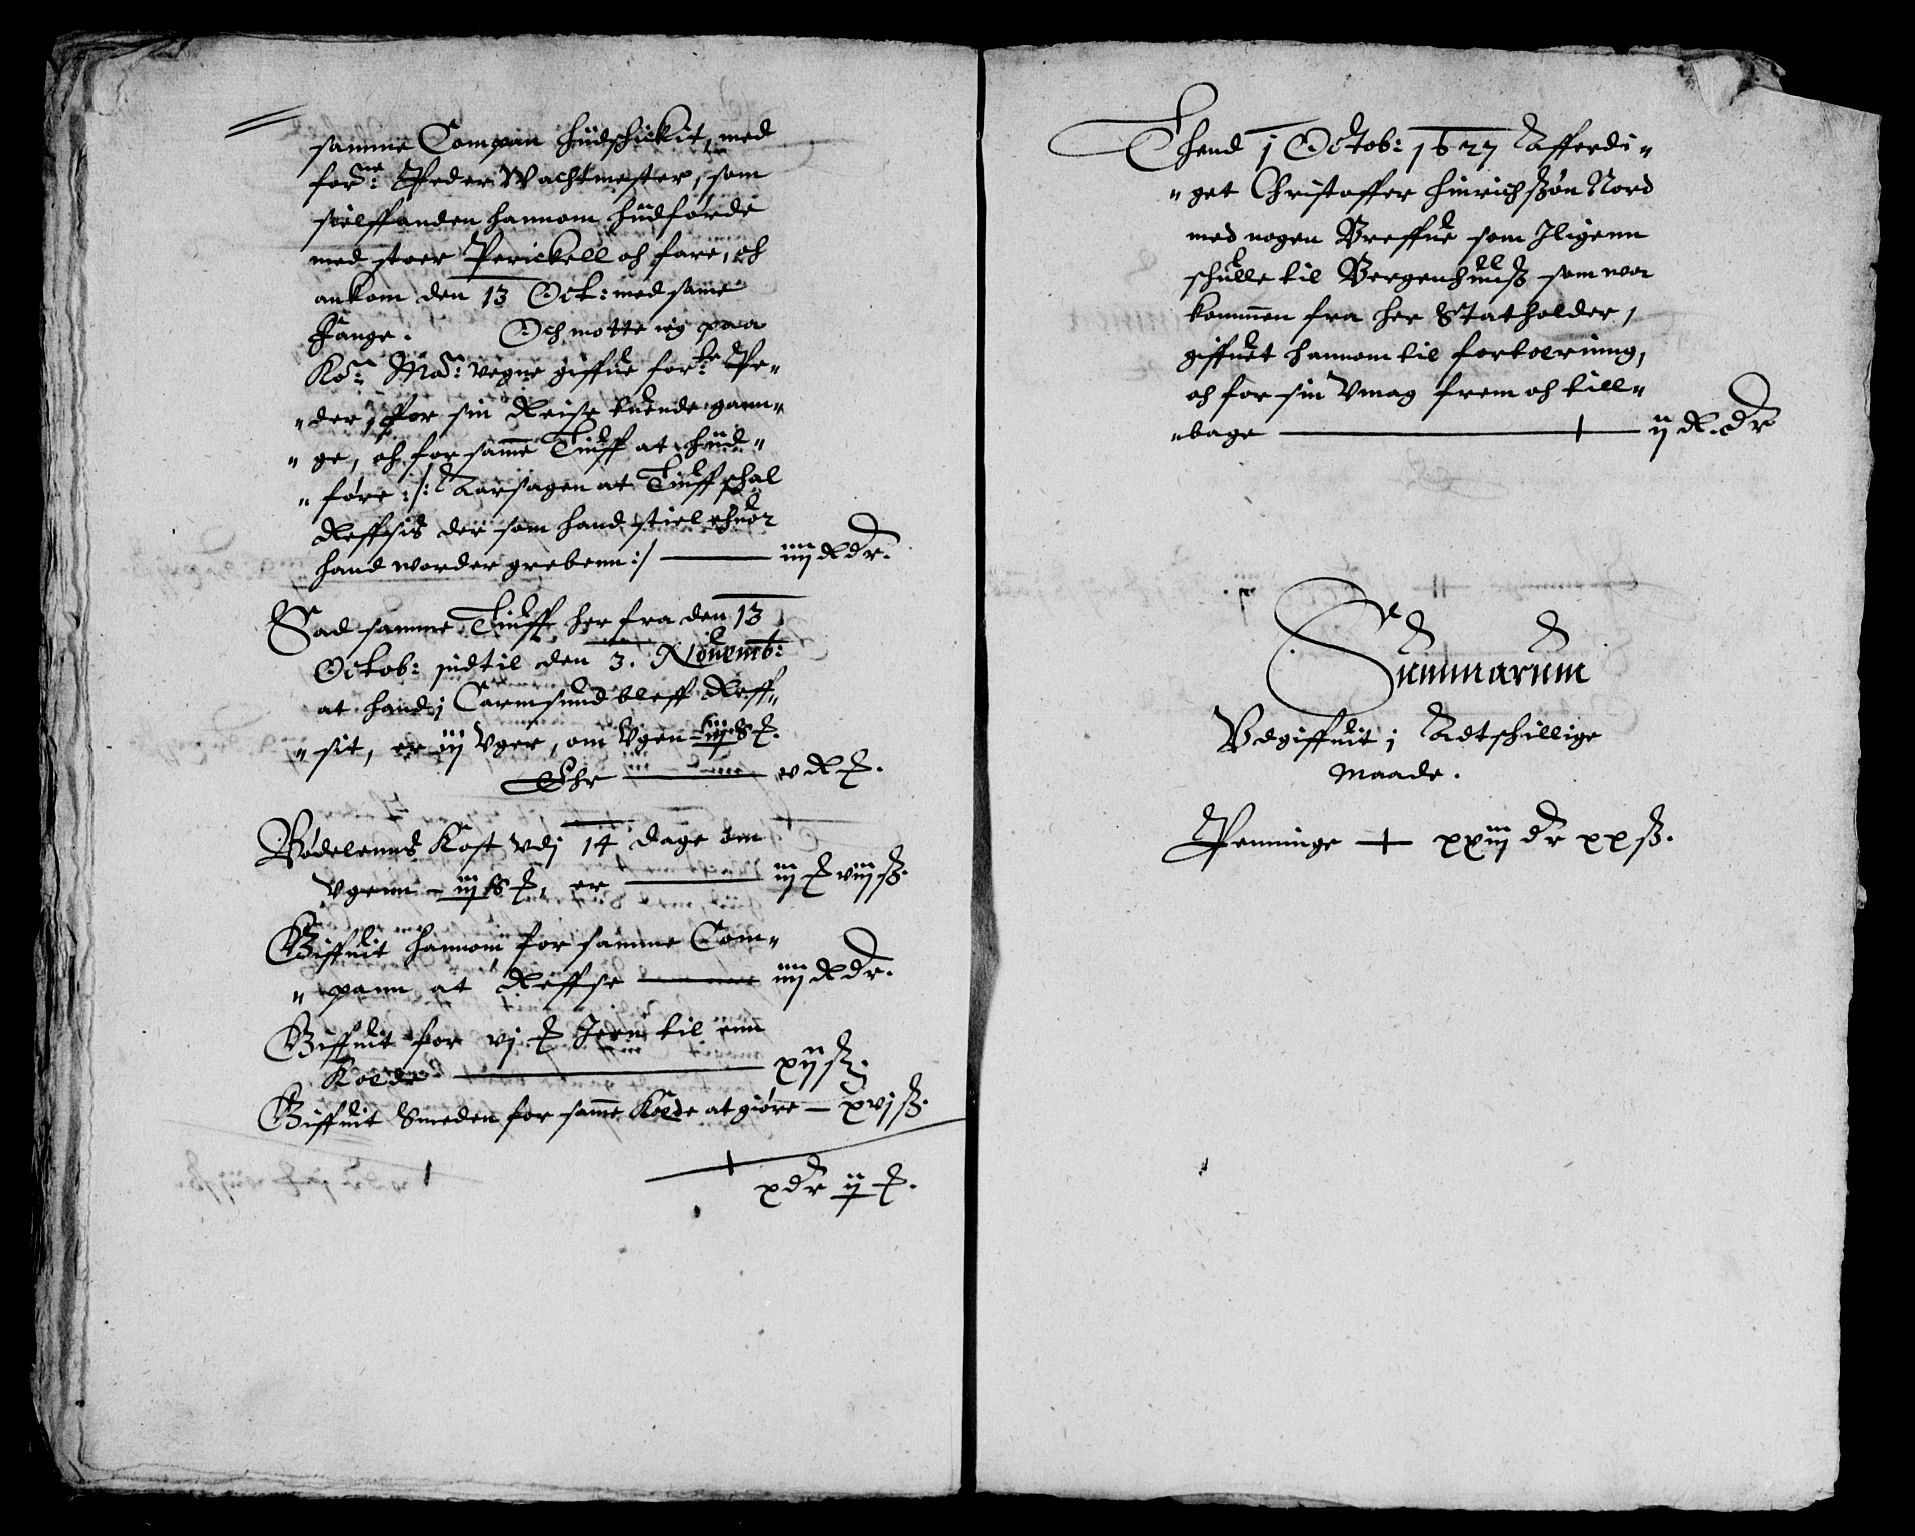 samme Compan hiidschickit, med
for:ne Peder Wachtmester, som
sielffanden hannom hiidførde
med stoer Perickell och fare, och
ankom den 13 Oct: med same
Fange. Och motte ieg paa
Ko: Ma: vegne giffue for:ne Pe-
der for sin Reise tuende gann-
ge, och for same Tiuff at hiid-
føre :/: Aarsagen at Tiuff schal
Reffsis der som hand stiel ehuor
hand worder grebenn :/ iiij R dr.
Sad samme Tiuff her fra den 13
Octob: indtil den 3. Nouemb:
at hand i Carmsund bleff Reff-
sit, er iij Vger, om Vgen
Ehr v R
Bødelenns Kost vdj 14 dage om
Vgenn er viij ß.
Giffuit hannom for samme Com-
pann at Reffse iiij R dr.
Giffuit for vj Jern til enn
Kolde xij ß.
Giffuit Smeden for same Kolde at giøre xvj ß.
x dr ij
Thend 1 Octob: 1627 Afferdi-
get Christoffer Hinrichßøn Nord
med nogen Breffue som Iligenn
schulle til Bergenhuuß som war
kommen fra her Statholder,
giffuet hannom til fortæring,
och for sin Vmag frem och till-
bage ij R. dr
Summarum
Vdgiffuit i Adtschillige
Maade.
Penninge xxiij dr xx ß.